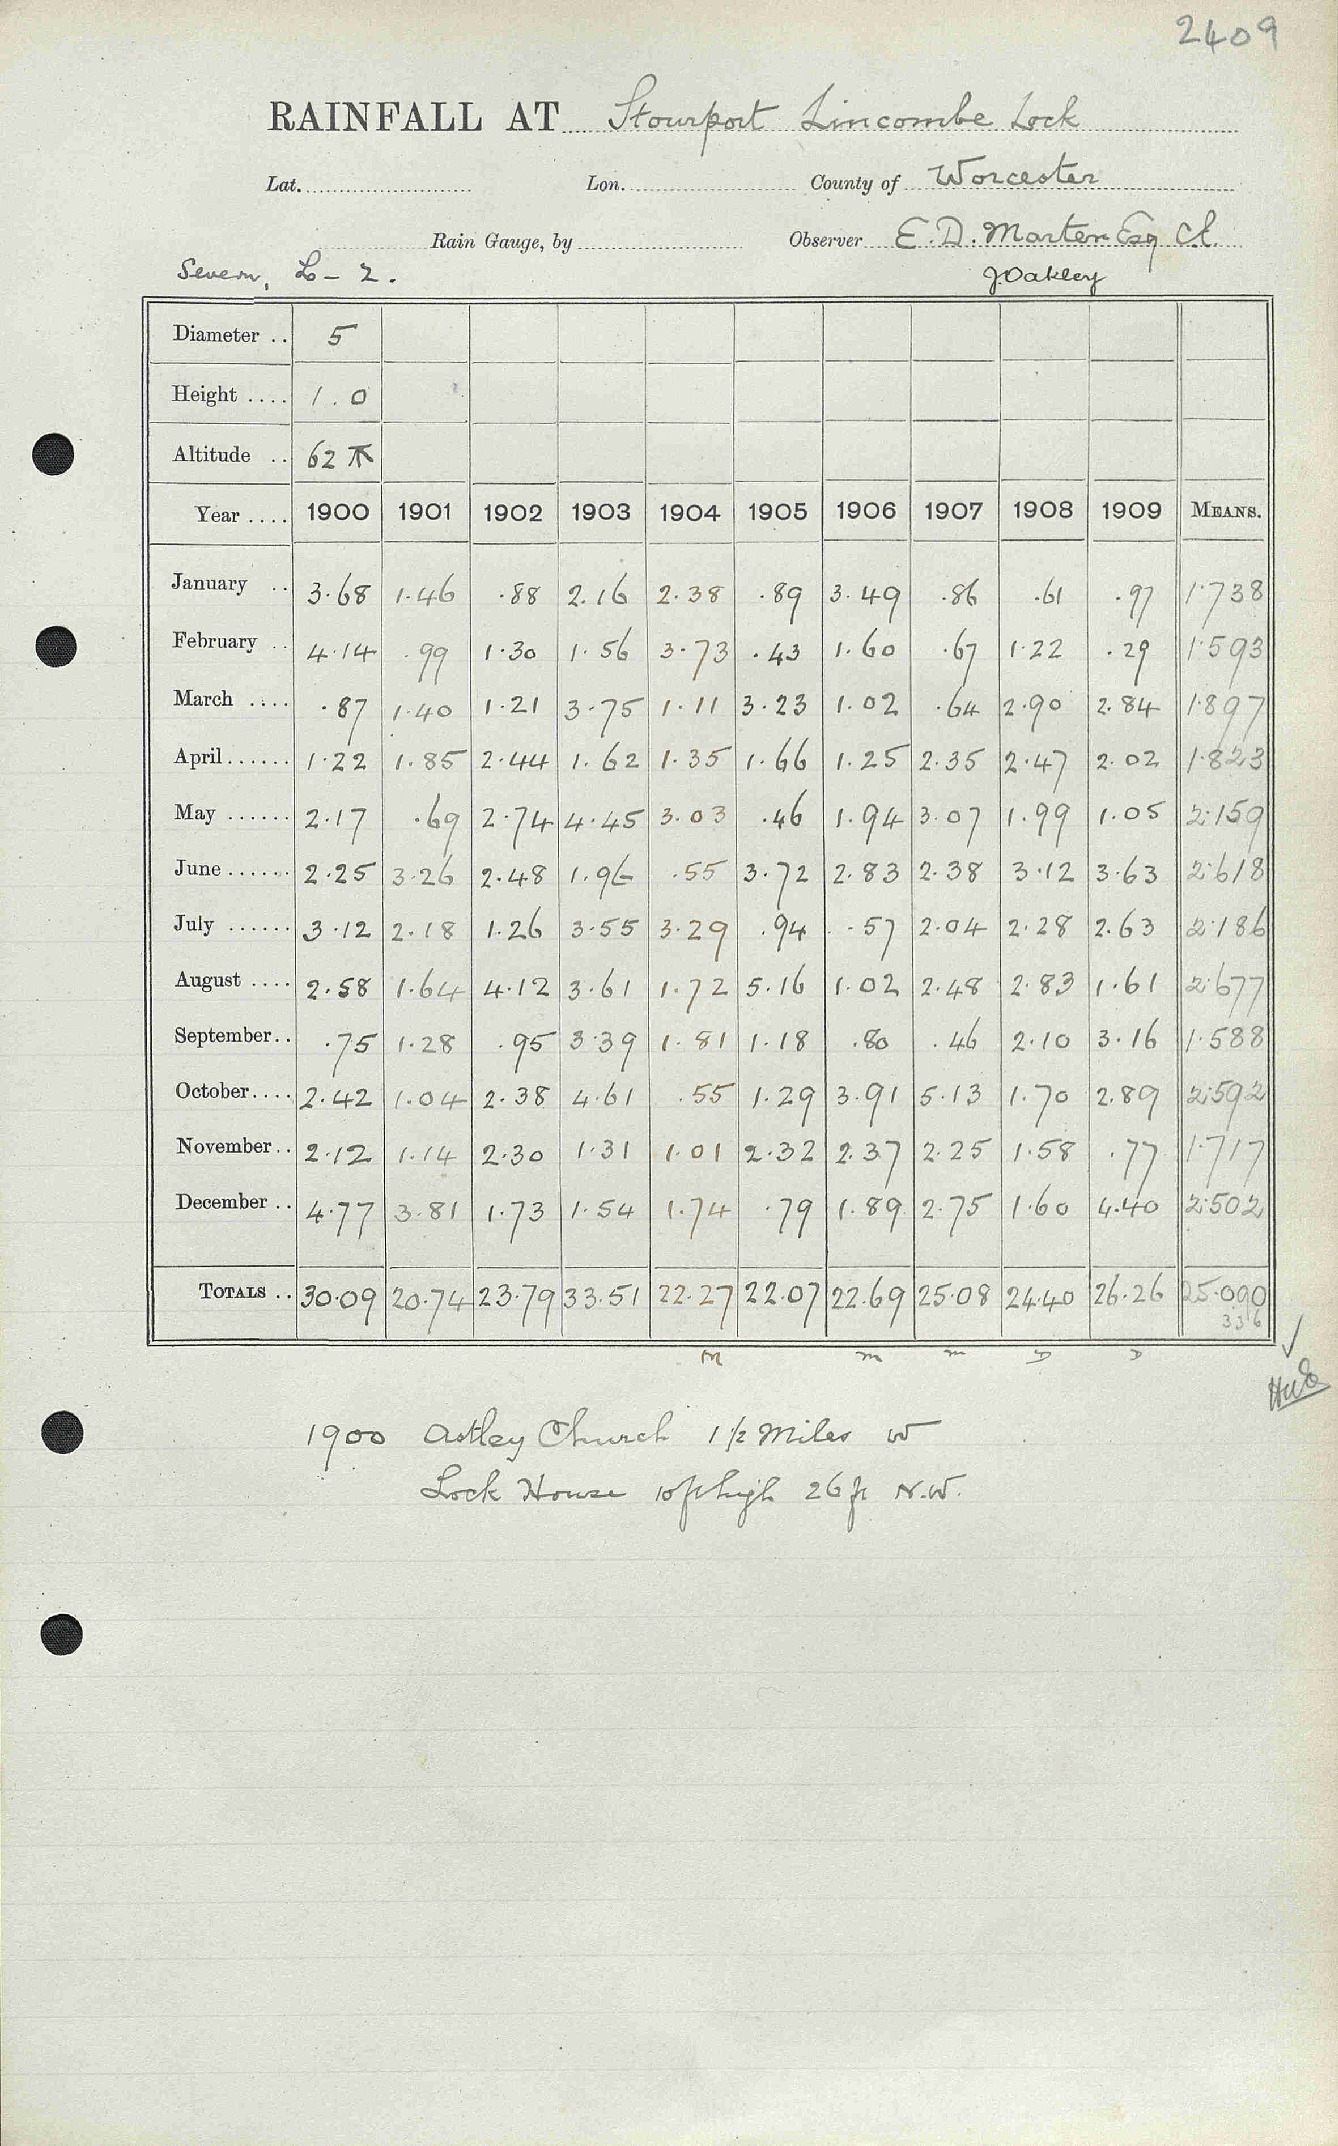 2409
RAINFALL AT Stourport Lincombe Lock
Lat. Lon. County of Worcester
Rain Gauge, by Observer E.D. Marten Esq C.E.
Severn, L-2. J. Oakley
Diameter .. 5
Height .... 1.0
Altitude .. 62
Year .... 1900 1901 1902 1903 1904 1905 1906 1907 1908 1909 MEANS.
January .. 3.68 1.46 .88 2.16 2.38 .89 3.49 .86 .61 .97 1.738
February .. 4.14 .99 1.30 1.56 3.73 .43 1.60 .67 1.22 .29 1.593
March .... .87 1.40 1.21 3.75 1.11 3.23 1.02 .64 2.90 2.84 1.897
April...... 1.22 1.85 2.44 1.62 1.35 1.66 1.25 2.35 2.47 2.02 1.823
May ...... 2.17 .69 2.74 4.45 3.03 .46 1.94 3.07 1.99 1.05 2.159
June...... 2.25 3.26 2.48 1.96 .55 3.72 2.83 2.38 3.12 3.63 2.618
July ...... 3.12 2.18 1.26 3.55 3.29 .94 .57 2.04 2.28 2.63 2.186
August .... 2.58 1.64 4.12 3.61 1.72 5.16 1.02 2.48 2.83 1.61 2.677
September.. .75 1.28 .95 3.39 1.81 1.18 .80 .46 2.10 3.16 1.588
October.... 2.42 1.04 2.38 4.61 .55 1.29 3.91 5.13 1.70 2.89 2.592
November.. 2.12 1.14 2.30 1.31 1.01 2.32 2.37 2.25 1.58 .77 1.717
December .. 4.77 3.81 1.73 1.54 1.74 .79 1.89 2.75 1.60 4.40 2.502
TOTALS .. 30.09 20.74 23.79 33.51 22.27 22.07 22.69 25.08 24.40 26.26 25.090
336
M m m D D
1900 Astley Church 1 1/2 Miles W
Lock House 10ft high 26 ft N.W.